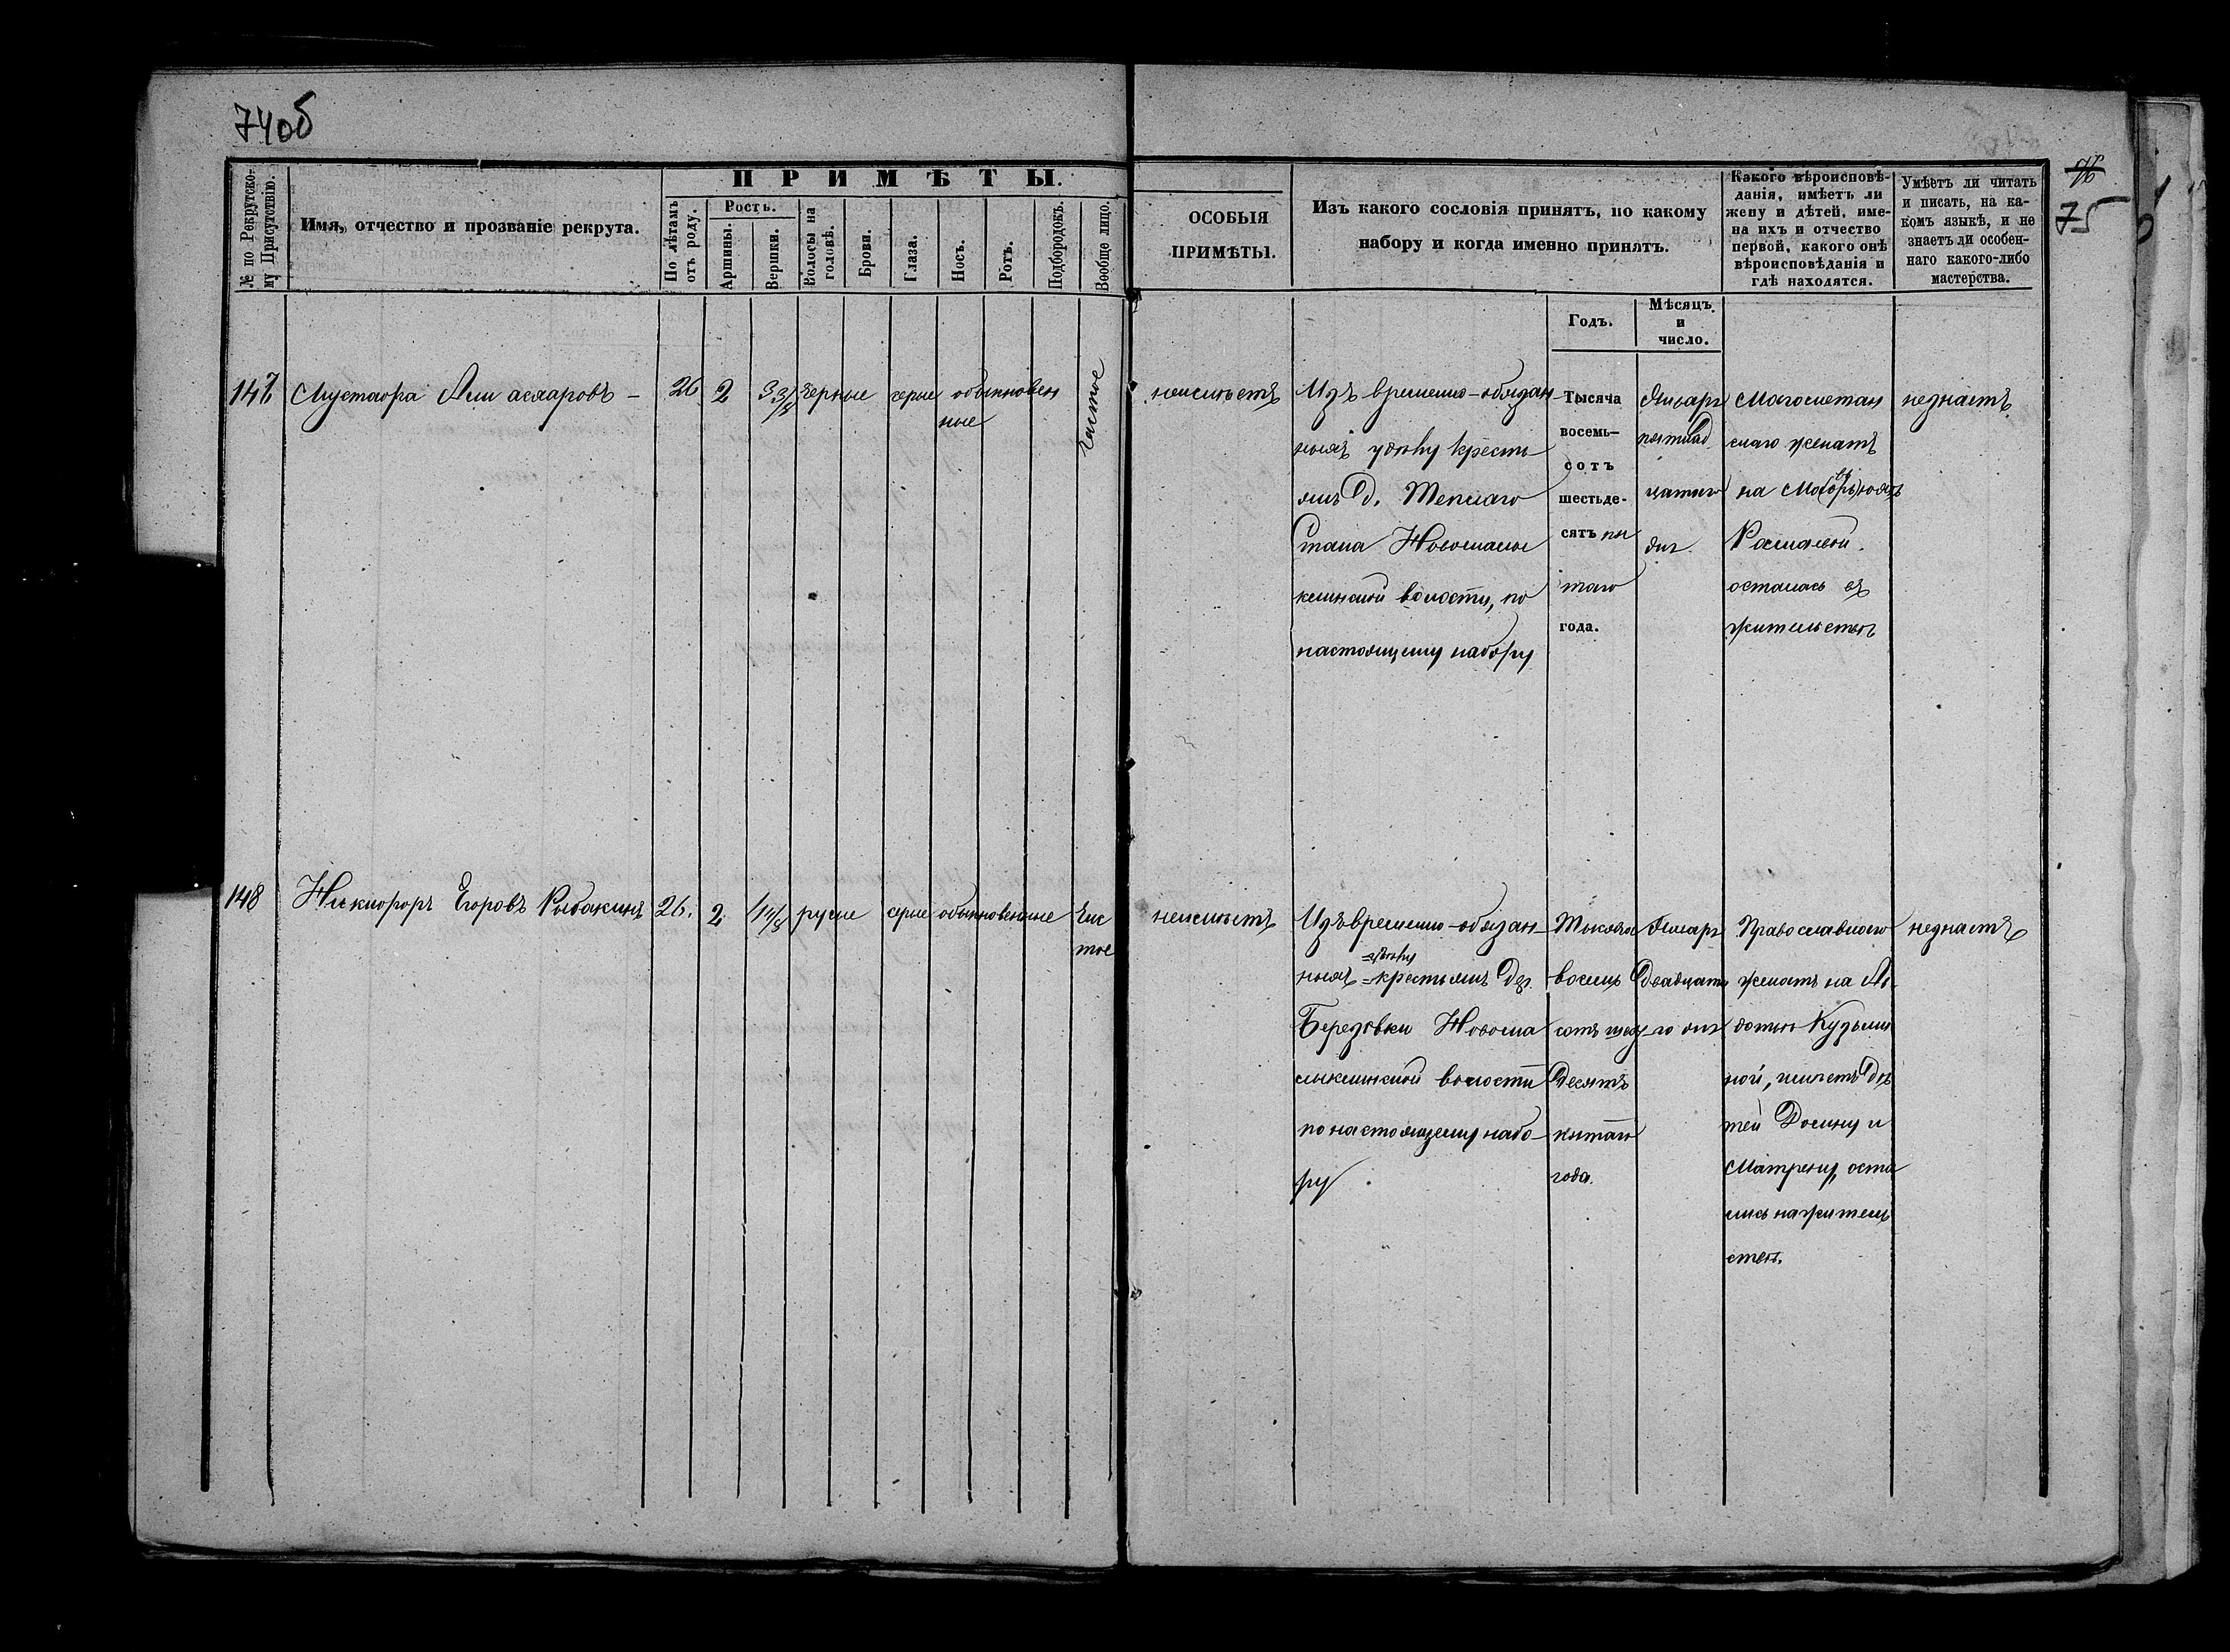 74об
75
№ по Рекрутско-
му Присутствію.
Имя, отчество и прозваніе рекрута.
ПРИМѢТЫ.
По лѣтамъ
отъ роду.
Ростъ.
Аршины.
Вершки.
Волосы на
головѣ.
Брови.
Глаза.
Носъ.
Ротъ.
Подбородокъ.
Вообще лицо.
ОСОБЫЯ
ПРИМѢТЫ.
Изъ какого сословія принятъ, по какому
набору и когда именно принятъ.
Какого вѣроисповѣ-
данія, имѣетъ ли
жену и дѣтей, име-
на ихъ и отчество
первой, какого онѣ
вѣроисповѣданія и
гдѣ находятся.
Умѣетъ ли читать
и писать, на ка-
комъ языкѣ, и не
знаетъ ли особен-
наго какого-либо
мастерства.
Годъ.
Мѣсяцъ
и
число.
147
Мустафа Алиаскаровъ -
26
2
3 3/8
черные
серые
обыкновен
ные
чистое
неимѣетъ
Изъ временно-обязан-
ныхъ удѣлу кресть
янъ д.
Стана Новомалы
клинской волости, по
настоящему набору
Тысяча
восемь-
сотъ
шестьде-
сятъ пя
таго
года.
Января
пятнад
цатаго
дня.
Магометан
скаго женатъ
на
осталась въ
жительствѣ
незнаетъ
148
Никифоръ Егоровъ Рыбакинъ
26.
2
русые
серые
обыкновенные
Чис
тое
неимѣетъ
Изъ временно-обязан-
удѣлу
ныхъ = крестьянъ дер.
Березовки Новома
лыклинской волости
по настоящему набо-
ру
Тысяча
восемь
сотъ шес
десятъ
пятаго
года.
Января
двадцата
го дня
Православнаго
женатъ на Ав
дотьѣ Кузьми
ной, имѣетъ дѣ
тей Домну и
Матрену, оста
лись на житель
ствѣ.
незнаетъ